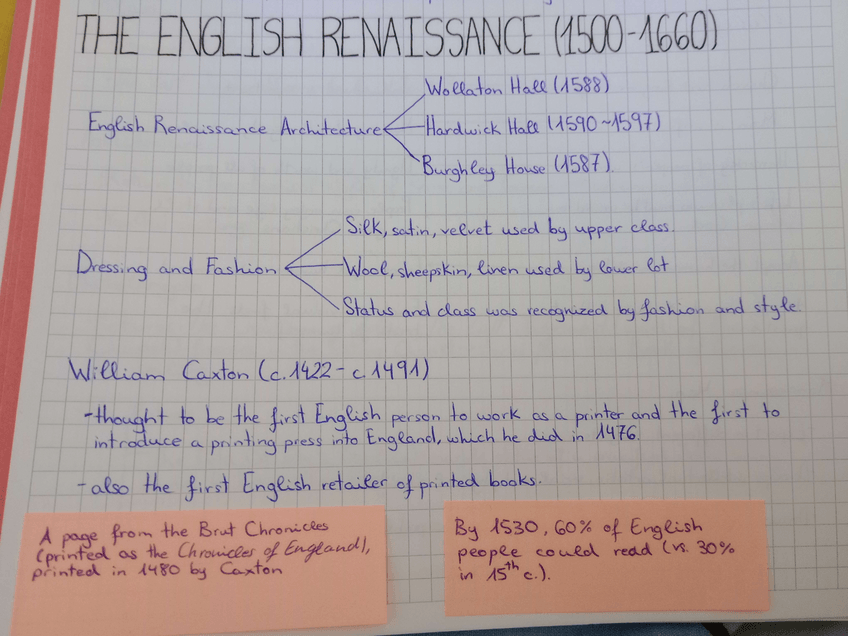 THE ENGLISH RENAISSANCE (1500-1660)
English Renaissance Architecture
Wollaton Hall (1588)
Hardwick Hall (1590~1597)
Burghley House (1587).
Dressing and Fashion
Silk, satin, velvet used by upper class.
Wool, sheepskin, linen used by lower lot
Status and class was recognized by fashion and style
William Caxton (c.1422 - c.1491)
-thought to be the first English person to work as a printer and the first to
introduce a printing press into England, which he did in 1476.
-also the first English retailer of printed books.
A page from the Brut Chronicles
(printed as the Chronicles of England),
printed in 1480 by Caxton
By 1530, 60% of English
people could read (vs. 30%
in 15th c.).